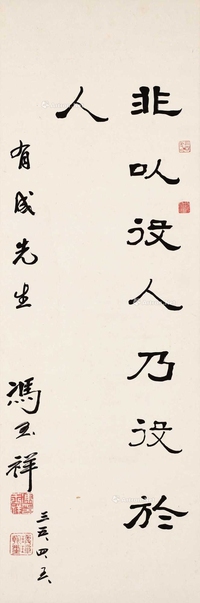 非以役人乃役於
人
有成先生
馮玉祥
三五、四、五、